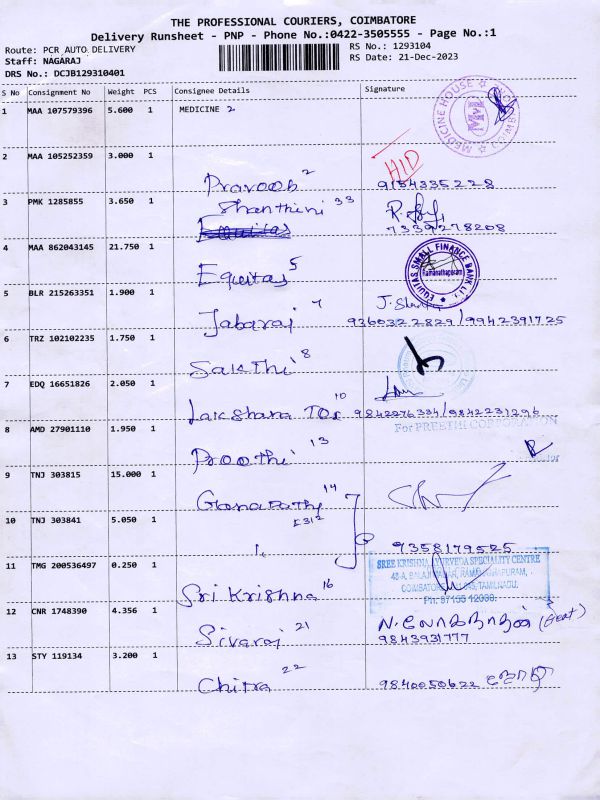 THE PROFESSIONAL COURIERS, COIMBATORE
Delivery Runsheet - PNP - Phone No.:0422-3505555 - Page No.:1
Route: PCR AUTO DELIVERY
RS No.: 1293104
Staff: NAGARAJ
RS Date: 21-Dec-2023
DRS No.: DCJB129310401
S No Consignment No Weight PCS Consignee Details Signature
1 MAA 107579396 5.600 1 MEDICINE 2
MEDICINE HOUSE
2 MAA 105252359 3.000 1
HID
Pravoob 2 9154335228
3 PMK 1285855 3.650 1
Shanthini 33
Equitas 7339278208
4 MAA 862043145 21.750 1
EQUITAS SMALL FINANCE BANK LTD
Ramanathapuram
Equitas 5
5 BLR 215263351 1.900 1
Jabaraj 7 9360322829/9942391725
6 TRZ 102102235 1.750 1
Sakthi 8
7 EDQ 16651826 2.050 1
Lakshara Tex 10 9842276334/9842231296
8 AMD 27901110 1.950 1
For PREETHI CORPORATION
Proothi 13
9 TNJ 303815 15.000 1
Ganapathy 14
10 TNJ 303841 5.050 1
9358179525
11 TMG 200536497 0.250 1
SREE KRISHNA AYURVEDA SPECIALITY CENTRE
COIMBATORE
TAMILNADU.
Sri Krishna 16
12 CNR 1748390 4.356 1
Sivaraj 21 9843931777
13 STY 119134 3.200 1
Chitra 22 9840050622